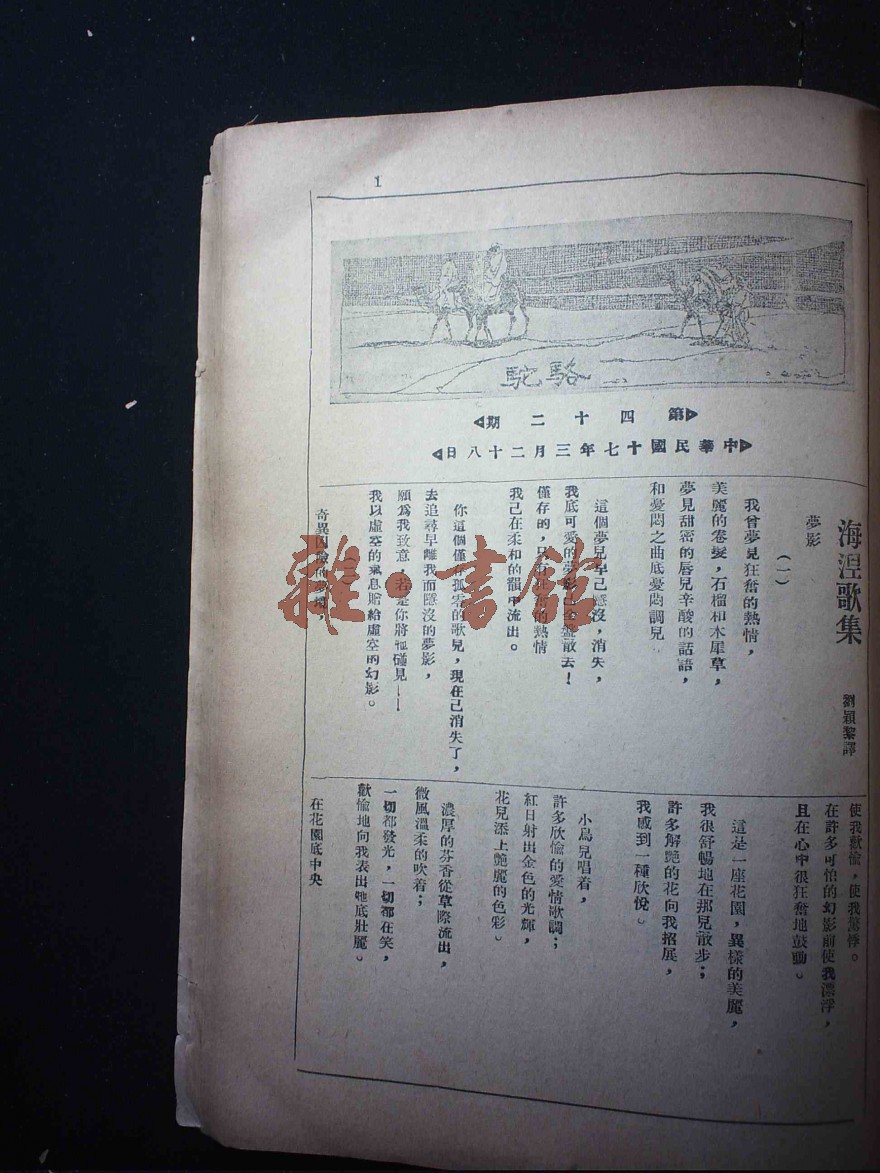 1
駱駝
第四十二期
中華民國十七年三月二十八日
海涅歌集
劉穎黎譯
夢影
(一)
我曾夢見狂奮的熱情，
美麗的卷髮，石榴和木犀草，
夢見甜密的唇兒辛酸的話語，
和憂悶之曲底憂悶調兒
這個夢兒早已隱沒，消失，
我底可愛的夢影已全盤散去！
僅存的，只有
的熱情
我已在柔和的韻中流出。
你這個僅存孤零的歌兒，現在已消失了，
去追尋早離我而隱沒的夢影，
願爲我致意，若是你將牠碰見——
我以虛空的氣息贈給虛空的幻影。
奇異凶險的夢境，
使我歡愉，使我驚悸。
在許多可怕的幻影前使我漂浮，
且在心中很狂奮地鼓動。
這是一座花園，異樣的美麗，
我很舒暢地在那兒散步；
許多解艷的花向我招展，
我感到一種欣悅。
小鳥兒唱着，
許多欣愉的愛情歌調；
紅日射出金色的光輝，
花兒添上艷麗的色彩。
濃厚的芬香從草際流出，
微風溫柔的吹着；
一切都發光，一切都在笑，
歡愉地向我表出牠底壯麗。
在花園底中央
雜·書館